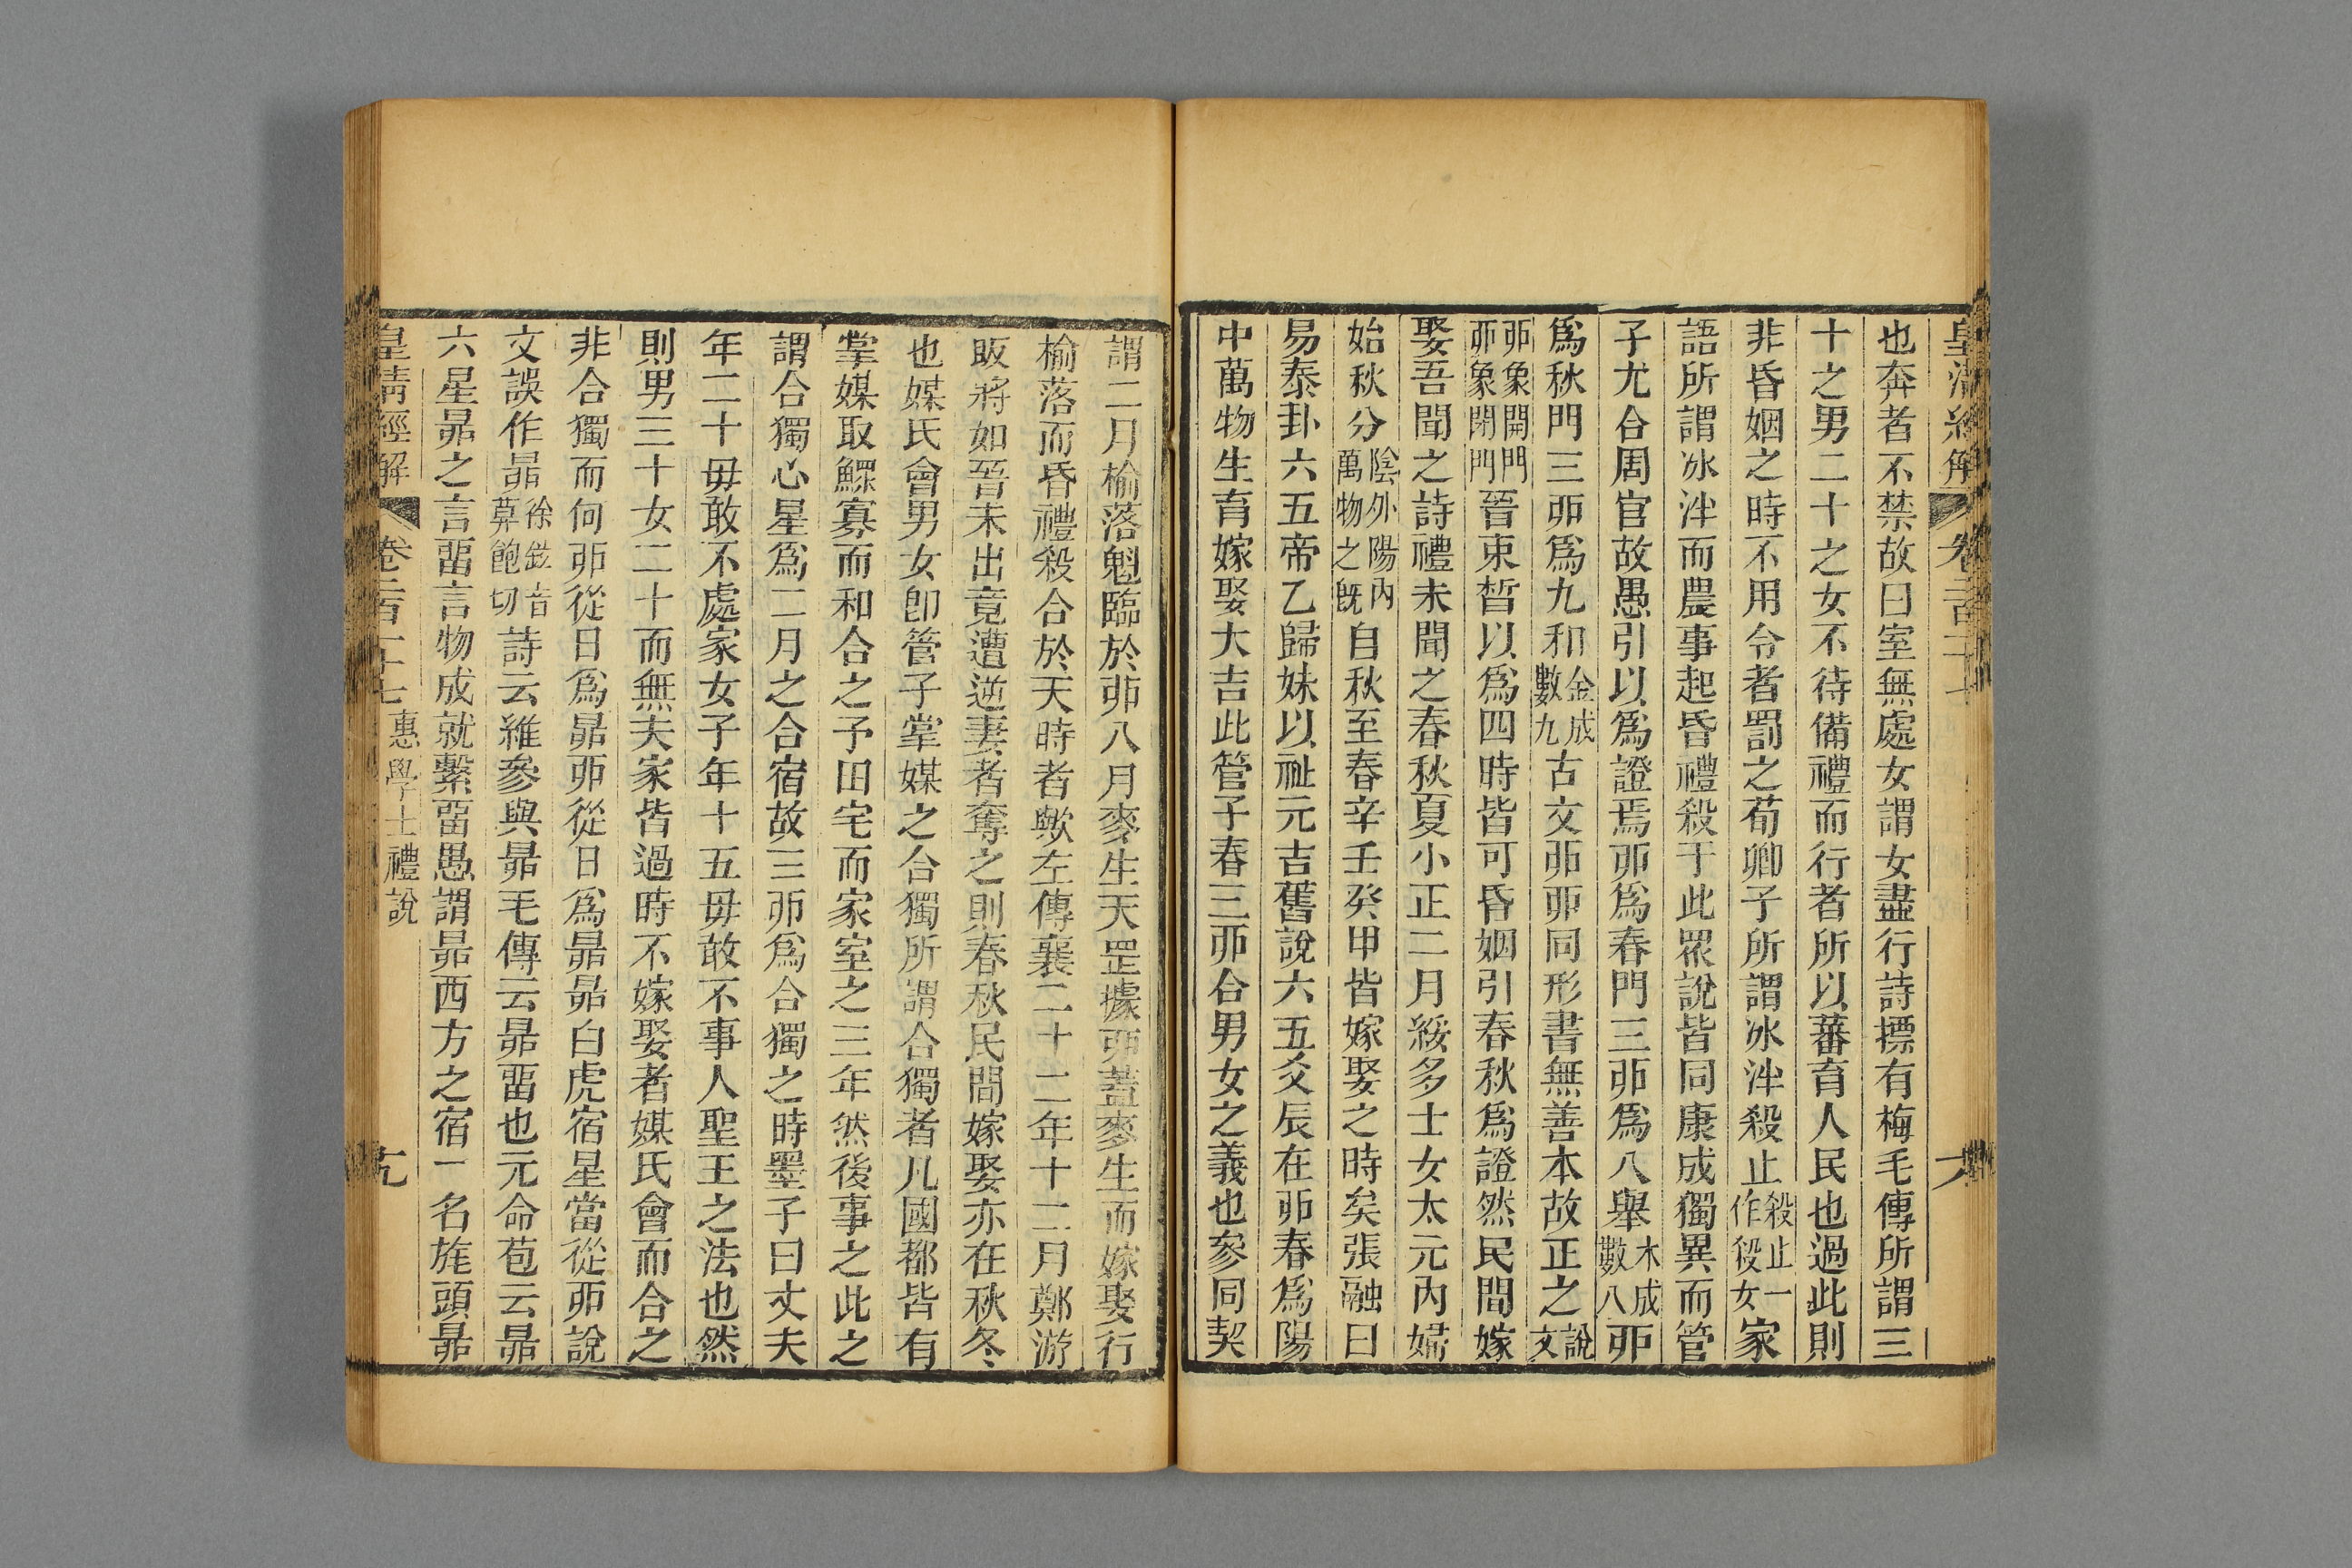 皇清經解
卷二百二十
也奔者不禁故曰室無處女謂女盡行詩摽有梅毛傳所謂三
十之男二十之女不待備禮而行者所以蕃育人民也過此則
非昏姻之時不用令者罰之荀卿子所謂冰泮殺止殺止一作殺女家
語所謂冰泮而農事起昏禮殺于此眾說皆同康成獨異而管
子尤合周官故愚引以爲證焉丣爲春門三丣爲八舉木成數八丣
爲秋門三丣爲九和金成數九古文丣丣同形書無善本故正之說文
丣象開門丣象閉門晉束晳以爲四時皆可昏姻引春秋爲證然民間嫁
娶吾聞之詩禮未聞之春秋夏小正二月綏多士女太元內婦
始秋分陰外陽內萬物之旣自秋至春辛壬癸甲皆嫁娶之時矣張融曰
易泰卦六五帝乙歸妹以祉元吉舊說六五爻辰在丣春爲陽
中萬物生育嫁娶大吉此管子春三丣合男女之義也參同契
謂二月榆落魁臨於丣八月麥生天罡據丣蓋麥生而嫁娶行
榆落而昏禮殺合於天時者歟左傳襄二十二年十二月鄭游
眅將如晉未出竟遭逆妻者奪之則春秋民間嫁娶亦在秋冬
也媒氏會男女卽管子掌媒之合獨所謂合獨者凡國都皆有
掌媒取鰥寡而和合之予田宅而家室之三年然後事之此之
謂合獨心星爲二月之合宿故三丣爲合獨之時墨子曰丈夫
年二十毋敢不處家女子年十五毋敢不事人聖王之法也然
則男三十女二十而無夫家皆過時不嫁娶者媒氏會而合之
非合獨而何丣從日爲昴丣從日爲昴昴白虎宿星當從丣說
文誤作昴徐鉉音莫飽切詩云維參與昴毛傳云昴畱也元命苞云昴
六星昴之言畱言物成就繫畱愚謂昴西方之宿一名旄頭昴
皇清經解
卷二百一十七
惠學士禮說
十九